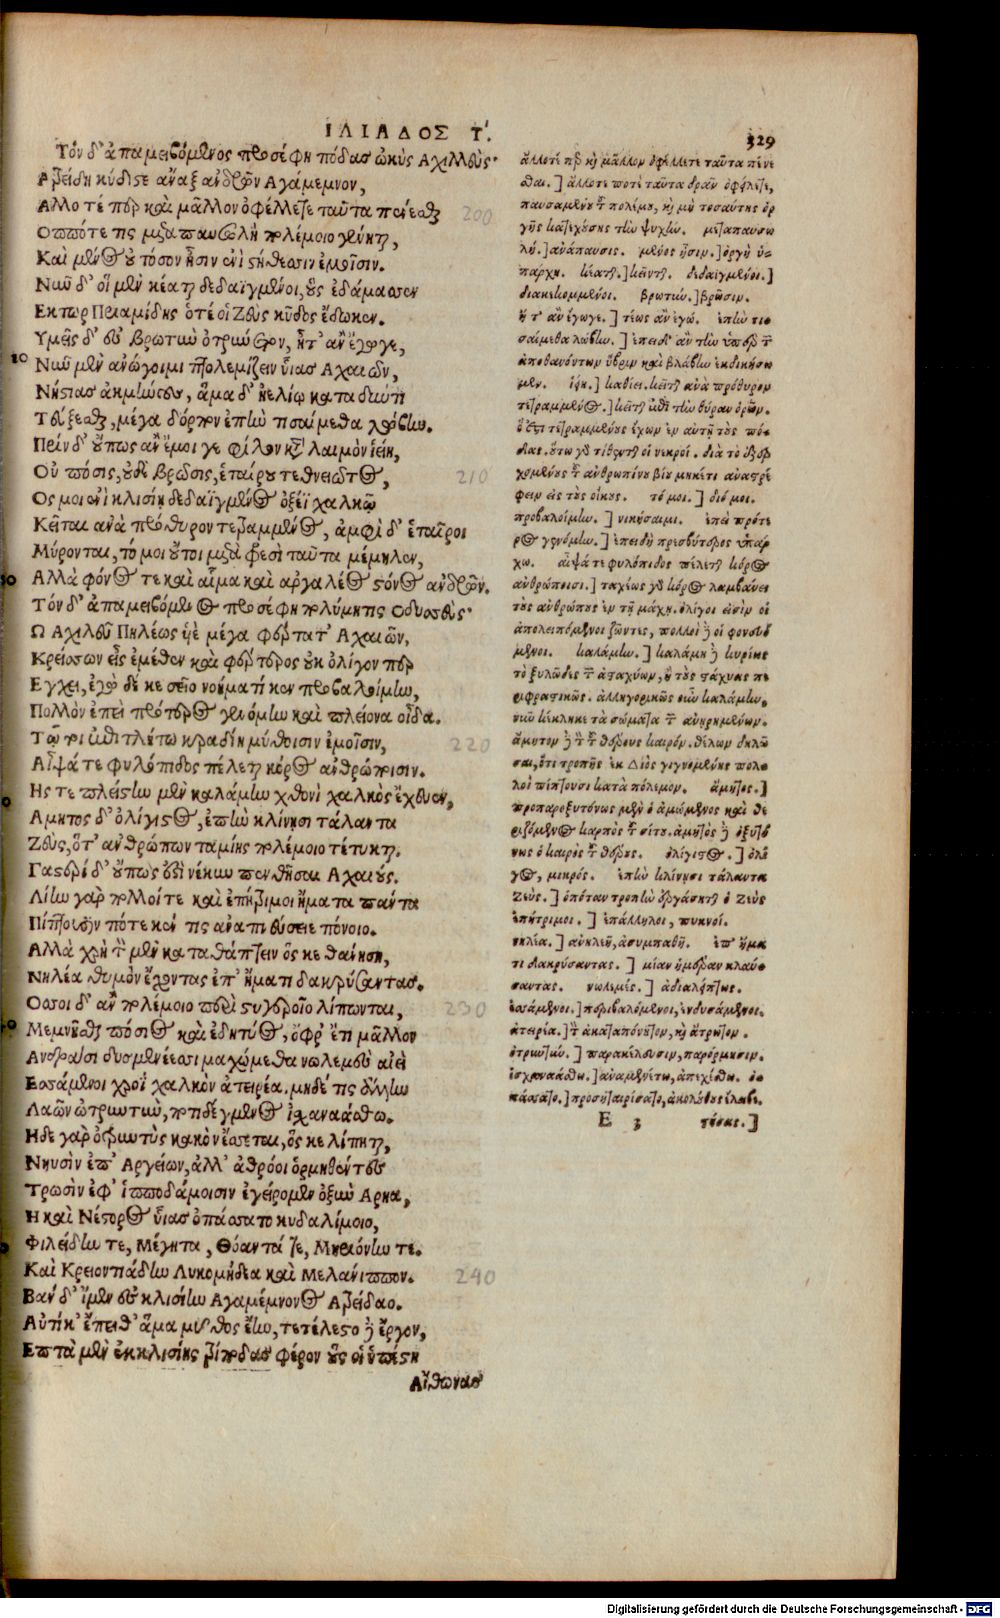 ΙΛΙΑΔΟΣ Τ.
329
Τὸν δ' ἀπαμειβόμενος προσέφη πόδας ὠκὺς Αχιλλεύς·
Ατρείδη κύδιστε ἄναξ ἀνδρῶν Αγάμεμνον,
Αλλοτέ περ καὶ μᾶλλον ὀφέλλετε ταῦτα πένεσθαι 200
Οππότε τις μεταπαυσωλὴ πολέμοιο γένηται,
Καὶ μένος οὐ τόσον ᾖσιν ἐνὶ στήθεσσιν ἐμοῖσιν.
Νῦν δ' οἱ μὲν κέαται δεδαϊγμένοι, οὓς ἐδάμασσεν
Εκτωρ Πριαμίδης ὅτέ οἱ Ζεὺς κῦδος ἔδωκεν.
Υμεῖς δ' ἐς βρωτὺν ὀτρύνετον, ἦτ' ἂν ἔγωγε,
Νῦν μὲν ἀνώγοιμι πτολεμίζειν υἷας Αχαιῶν,
Νήστιας ἀκμήνους, ἅμα δ' ἠελίῳ καταδύντι
Τεύξεσθαι, μέγα δόρπον ἐπὴν τισαίμεθα λώβην.
Πρὶν δ' οὔπως ἂν ἔμοιγε φίλον κατὰ λαιμὸν ἰείη,
Οὐ πόσις, οὐδὲ βρῶσις, ἑταίρου τεθνειῶτος, 210
Ος μοι ἐνὶ κλισίῃ δεδαϊγμένος ὀξέϊ χαλκῷ
Κεῖται ἀνὰ πρόθυρον τετραμμένος, ἀμφὶ δ' ἑταῖροι
Μύρονται, τό μοι οὔτοι μετὰ φρεσὶ ταῦτα μέμηλεν,
Αλλὰ φόνος τε καὶ αἷμα καὶ ἀργαλέος στόνος ἀνδρῶν.
Τὸν δ' ἀπαμειβόμενος προσέφη πολύμητις Οδυσσεύς·
Ω Αχιλεῦ Πηλέως υἱὲ μέγα φέρτατ' Αχαιῶν,
Κρείσσων εἰς ἐμέθεν καὶ φέρτερος οὐκ ὀλίγον περ
Εγχει, ἐγὼ δέ κε σεῖο νοήματί κεν προβαλοίμην,
Πολλὸν ἐπεὶ πρότερος γενόμην καὶ πλείονα οἶδα.
Τῷ τοι ἐπιτλήτω κραδίη μύθοισιν ἐμοῖσιν, 220
Αἶψά τε φυλόπιδος πέλεται κόρος ἀνθρώποισιν.
Ης τε πλείστην μὲν καλάμην χθονὶ χαλκὸς ἔχευεν,
Αμητος δ' ὀλίγιστος, ἐπὴν κλίνησι τάλαντα
Ζεὺς, ὅτ' ἀνθρώπων ταμίης πολέμοιο τέτυκται.
Γαστέρι δ' οὔπως ἐστὶ νέκυν πενθῆσαι Αχαιούς.
Λίην γὰρ πολλοί τε καὶ ἐπήτριμοι ἤματα πάντα
Πίπτουσιν πότε κέν τις ἀναπνεύσειε πόνοιο.
Αλλὰ χρὴ τὸν μὲν καταθάπτειν ὅς κε θάνῃσι,
Νηλέα θυμὸν ἔχοντας ἐπ' ἤματι δακρύσαντας.
Οσσοι δ' ἂν πολέμοιο περὶ στυγεροῖο λίπωνται, 230
Μεμνῆσθαι πόσιος καὶ ἐδητύος, ὄφρ' ἔτι μᾶλλον
Ανδράσι δυσμενέεσσι μαχώμεθα νωλεμὲς αἰεὶ
Εσσάμενοι χροῒ χαλκὸν ἀτειρέα. μηδέ τις ἄλλην
Λαῶν ὠτρυντὺν, ποτιδέγμενος ἰσχαναάσθω.
Ηδε γὰρ ὀτρυντὺς κακὸν ἔσσεται, ὅς κε λίπηται,
Νηυσὶν ἐπ' Αργείων, ἀλλ' ἀθρόοι ὁρμηθέντες
Τρωσὶν ἐφ' ἱπποδάμοισιν ἐγείρομεν ὀξὺν Αρηα,
Η καὶ Νέστορος υἷας ὀπάσσατο κυδαλίμοιο,
Φυλείδην τε, Μέγητα, Θόαντά τε, Μηριόνην τε.
Καὶ Κρειοντιάδην Λυκομήδεα καὶ Μελάνιππον. 240
Βὰν δ' ἴμεν ἐς κλισίην Αγαμέμνονος Ατρείδαο.
Αὐτίκ' ἔπειθ' ἅμα μῦθος ἔην, τετέλεστο δὲ ἔργον,
Επτὰ μὲν ἐκ κλισίης τρίποδας φέρον οὕς οἱ ὑπέστη
Αἴθωνας
ἄλλοτέ περ καὶ μᾶλλον ὀφέλλετε ταῦτα πένε
σθαι.] ἄλλοτε ποτὲ ταῦτα δρᾶν ὀφείλετε,
παυσαμένου τοῦ πολέμου, καὶ μὴ τοσαύτης ὀρ
γῆς κατεχούσης τὴν ψυχήν. μεταπαυσω
λή.] ἀνάπαυσις. μένος ᾖσιν.] ὀργὴ ὑ-
πάρχῃ. κέαται.] κεῖνται. δεδαϊγμένοι.]
διακεκομμένοι. βρωτύν.] βρῶσιν.
ἦ τ' ἂν ἔγωγε.] τέως ἂν ἐγώ. ἐπὴν τι
σαίμεθα λώβην.] ἐπειδ' ἂν τὴν ὑπὲρ τῶν
ἀποθανόντων ὕβριν καὶ βλάβην ἐκδικήσω
μεν. ἰείη.] καθίει. κεῖται ἀνὰ πρόθυρον
τετραμμένος.] κεῖται ἐπὶ τὴν θύραν ὁρῶν.
ὅ ἐστι τετραμμένους ἔχων ἐν αὐτῇ τοὺς πό-
δας. οὕτω γὰρ τίθενται οἱ νεκροί. διὰ τὸ ἐξερ
χομένους τοῦ ἀνθρωπίνου βίου μηκέτι ἀναστρέ
φειν εἰς τοὺς οἴκους. τό μοι.] διό μοι.
προβαλοίμην.] νικήσαιμι. ἐπεὶ πρότε
ρος γενόμην.] ἐπειδὴ πρεσβύτερος ὑπάρ
χω. αἶψά τε φυλόπιδος πέλεται κόρος
ἀνθρώποισι.] ταχέως γὰρ κόρος λαμβάνει
τοὺς ἀνθρώπους ἐν τῇ μάχῃ. ὀλίγοι εἰσὶν οἱ
ἀπολειπόμενοι ζῶντες, πολλοὶ δὲ οἱ φονευό
μενοι. καλάμην.] καλάμη δὲ κυρίως
τὸ ξυλῶδες τῶν ἀσταχύων, ἢ τοὺς στάχυας πε
ριφραστικῶς. ἀλληγορικῶς οὖν καλάμην,
νῦν κέκληκε τὰ σώματα τῶν ἀνῃρημένων.
ἄμητον δὲ τὸν τοῦ θέρους καιρόν. θέλων δηλῶ
σαι, ὅτι τροπῆς ἐκ Διὸς γιγνομένης πολ-
λοὶ πίπτουσι κατὰ πόλεμον. ἄμητος.]
προπαροξυτόνως μὲν ὁ ἀμώμενος καὶ θε
ριζόμενος καρπὸς τοῦ σίτου. ἀμητὸς δὲ ὀξυτό
νως ὁ καιρὸς τοῦ θέρους. ὀλίγιστος.] ὀλί
γος, μικρός. ἐπὴν κλίνησι τάλαντα
Ζεύς.] ὁπόταν τροπὴν ἐργάσηται ὁ Ζεὺς
ἐπήτριμοι.] ἐπάλληλοι, πυκνοί.
νηλέα.] ἀνηλεῆ, ἀσυμπαθῆ. ἐπ' ἤμα
τι δακρύσαντας.] μίαν ἡμέραν κλαύ-
σαντας. νωλεμές.] ἀδιαλείπτως.
ἑσσάμενοι.] περιβαλόμενοι, ἐνδυσάμενοι.
ἀτειρέα.] τὸν ἀκαταπόνητον, καὶ ἄτρωτον.
ὀτρυντύν.] παρακέλευσιν, παρόρμησιν.
ἰσχαναάσθω.] ἀναμενέτω, ἀπεχέσθω. ὀ-
πάσσατο.] προσηταιρίσατο, ἀκολούθους ἔλαβε.
Ε 3 τόσκε.]
Digitalisierung gefördert durch die Deutsche Forschungsgemeinschaft - DFG